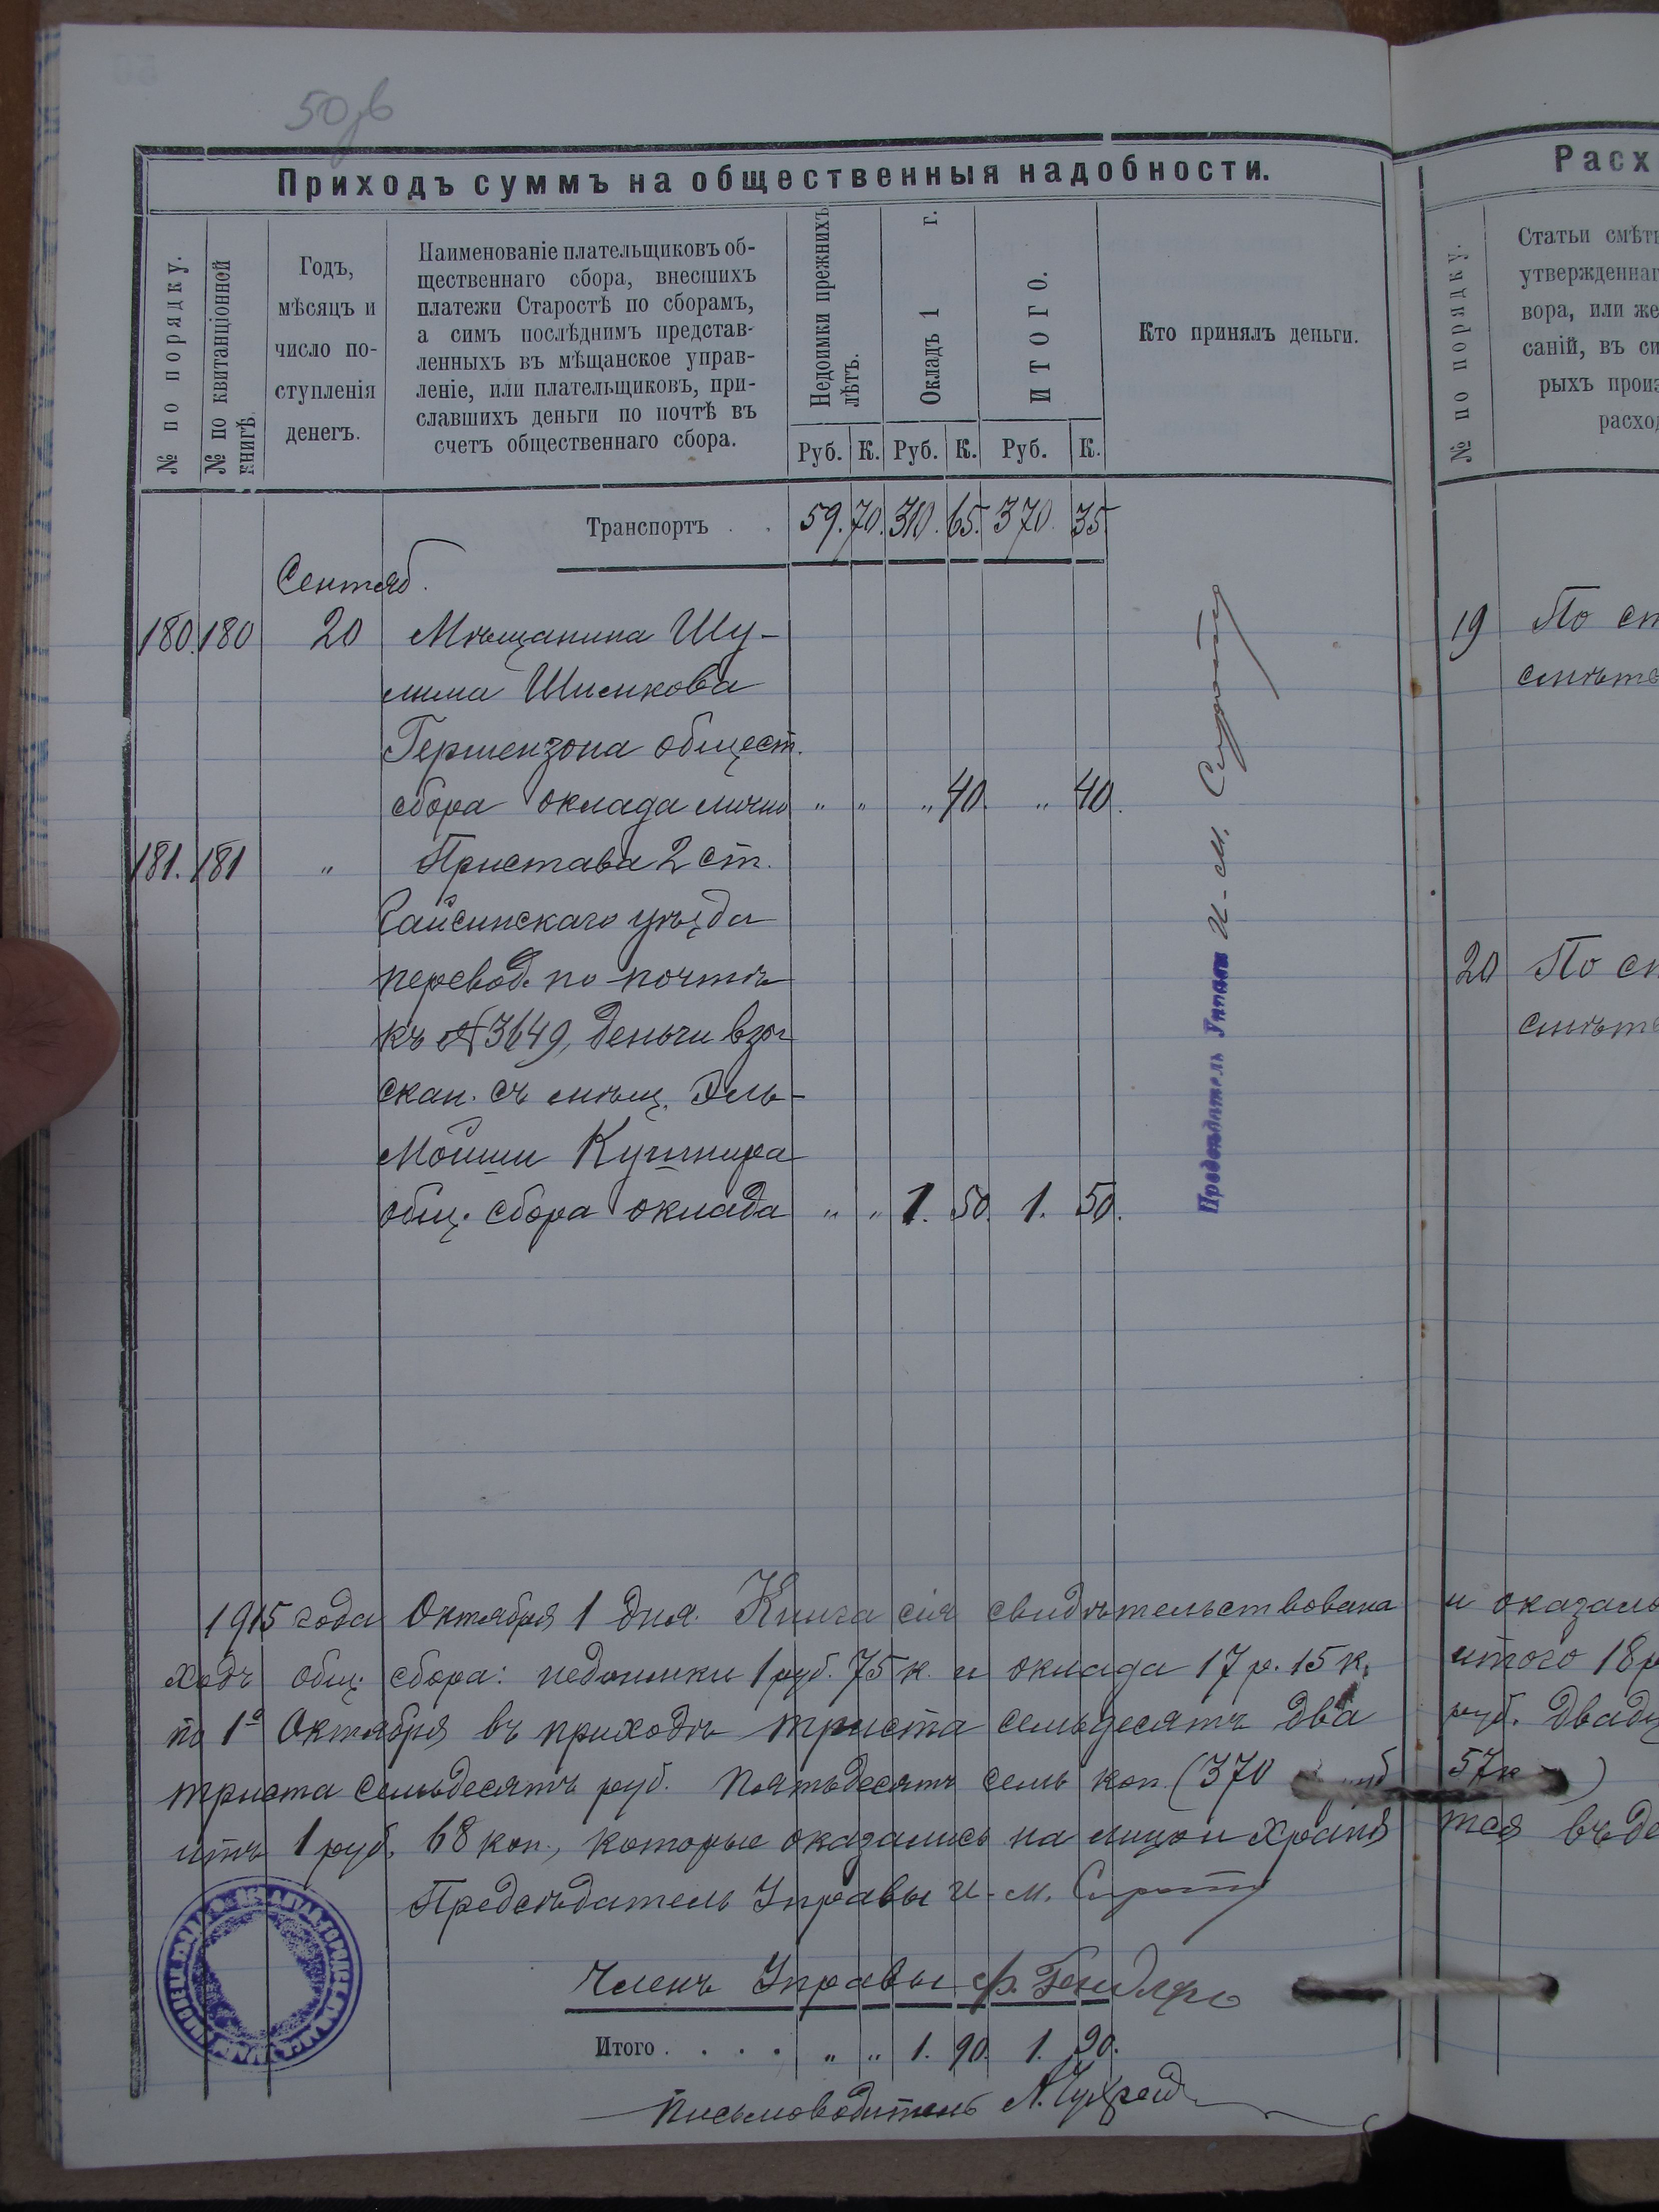 50зв
Приходъ суммъ на общественныя надобности.
№ по порядку.
№ по квитанціонной книгѣ.
Годъ,
мѣсяцъ и
число по-
ступленія
денегъ.
Наименованіе плательщиковъ об-
щественнаго сбора, внесшихъ
платежи Старостѣ по сборамъ,
а симъ послѣднимъ представ-
ленныхъ въ мѣщанское управ-
леніе, или плательщиковъ, при-
славшихъ деньги по почтѣ въ
счетъ общественнаго сбора.
Недоимки прежнихъ
лѣтъ.
Окладъ 1 г.
ИТОГО.
Кто принялъ деньги.
Руб. К. Руб. К. Руб. К.
Транспортъ . . 59. 70. 310. 65. 370. 35.
Сентяб.
180. 180 20 Мѣщанина Шу-
лима Шмикова
Гершензона общест.
сбора оклада лично „ „ „ 40. „ 40.
181. 181 „ Пристава 2 ст.
Гайсинскаго уѣзда
перевод. по почтѣ
къ №3649, деньги взы
скан. съ мѣщ. Эль-
Мойши Кушнира
общ. сбора оклада „ „ 1. 50. 1. 50.
Предсѣдатель Управы И-М. Сирота
1915 года Октября 1 дня. Книга сія свидѣтельствована и оказало
ходъ общ. сбора: недоимки 1 руб. 75 к. и оклада 17 р. 15 к. итого 18 р
по 1е Октября въ приходѣ триста семьдесятъ два руб. двадц
триста семьдесятъ руб. пятьдесятъ семь коп. (370 руб 57 к )
итъ 1 руб. 68 коп., которые оказались на лицо и храня тся въ де
Предсѣдатель Управы И-М. Сирота
Членъ Управы Ф.
Итого . . . . „ „ 1. 90. 1. 90.
Письмоводитель
Расх
№ по порядку.
Статьи смѣты
утвержденнаг
вора, или же
саній, въ си
рыхъ произ
расход
19 По ст
смѣтѣ
20 По ст
смѣтѣ